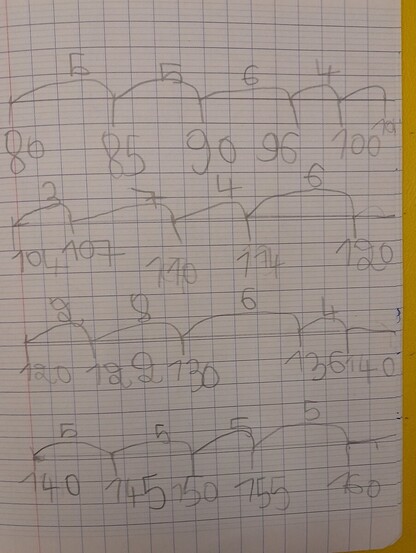 5 5 6 4
80 85 90 96 100
3 7 4 6
104 107 110 114 120
2 8 6 4
120 122 130 136 140
5 5 5 5
140 145 150 155 160